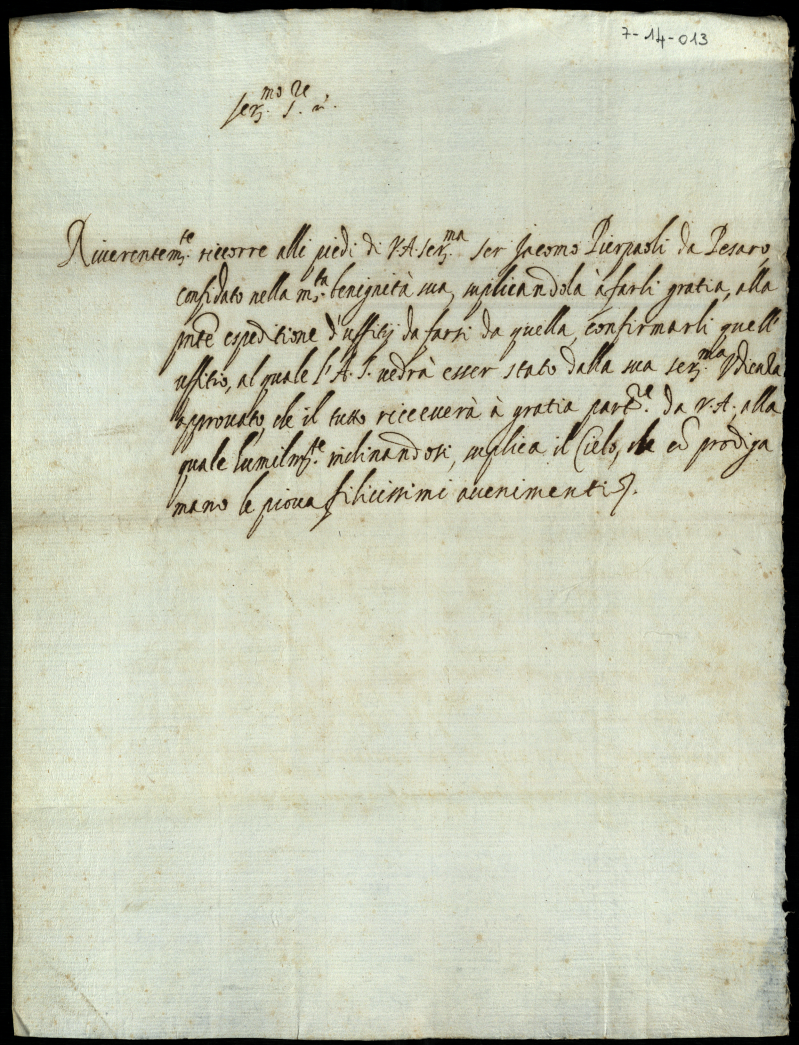 7-14-013
Ser.mo S.re n.
Riverentem.te riccorre alli piedi di V.A. Ser.ma Ser Jacomo Pierpaoli da Pesaro,
confidato nella m.ta benignità sua, suplicandola à farli gratia, alla
pnte espeditione d'uffitij da farsi da quella, confirmarli quell'
uffitio, al quale l'A.S. vedrà esser stato dalla sua Ser.ma
approvato, che il tutto riceverà à gratia part.re da V.A., alla
quale humilm.te inclinandosi, suplica il Cielo, che cō prodiga
mano le piova filicissimi avenimenti.